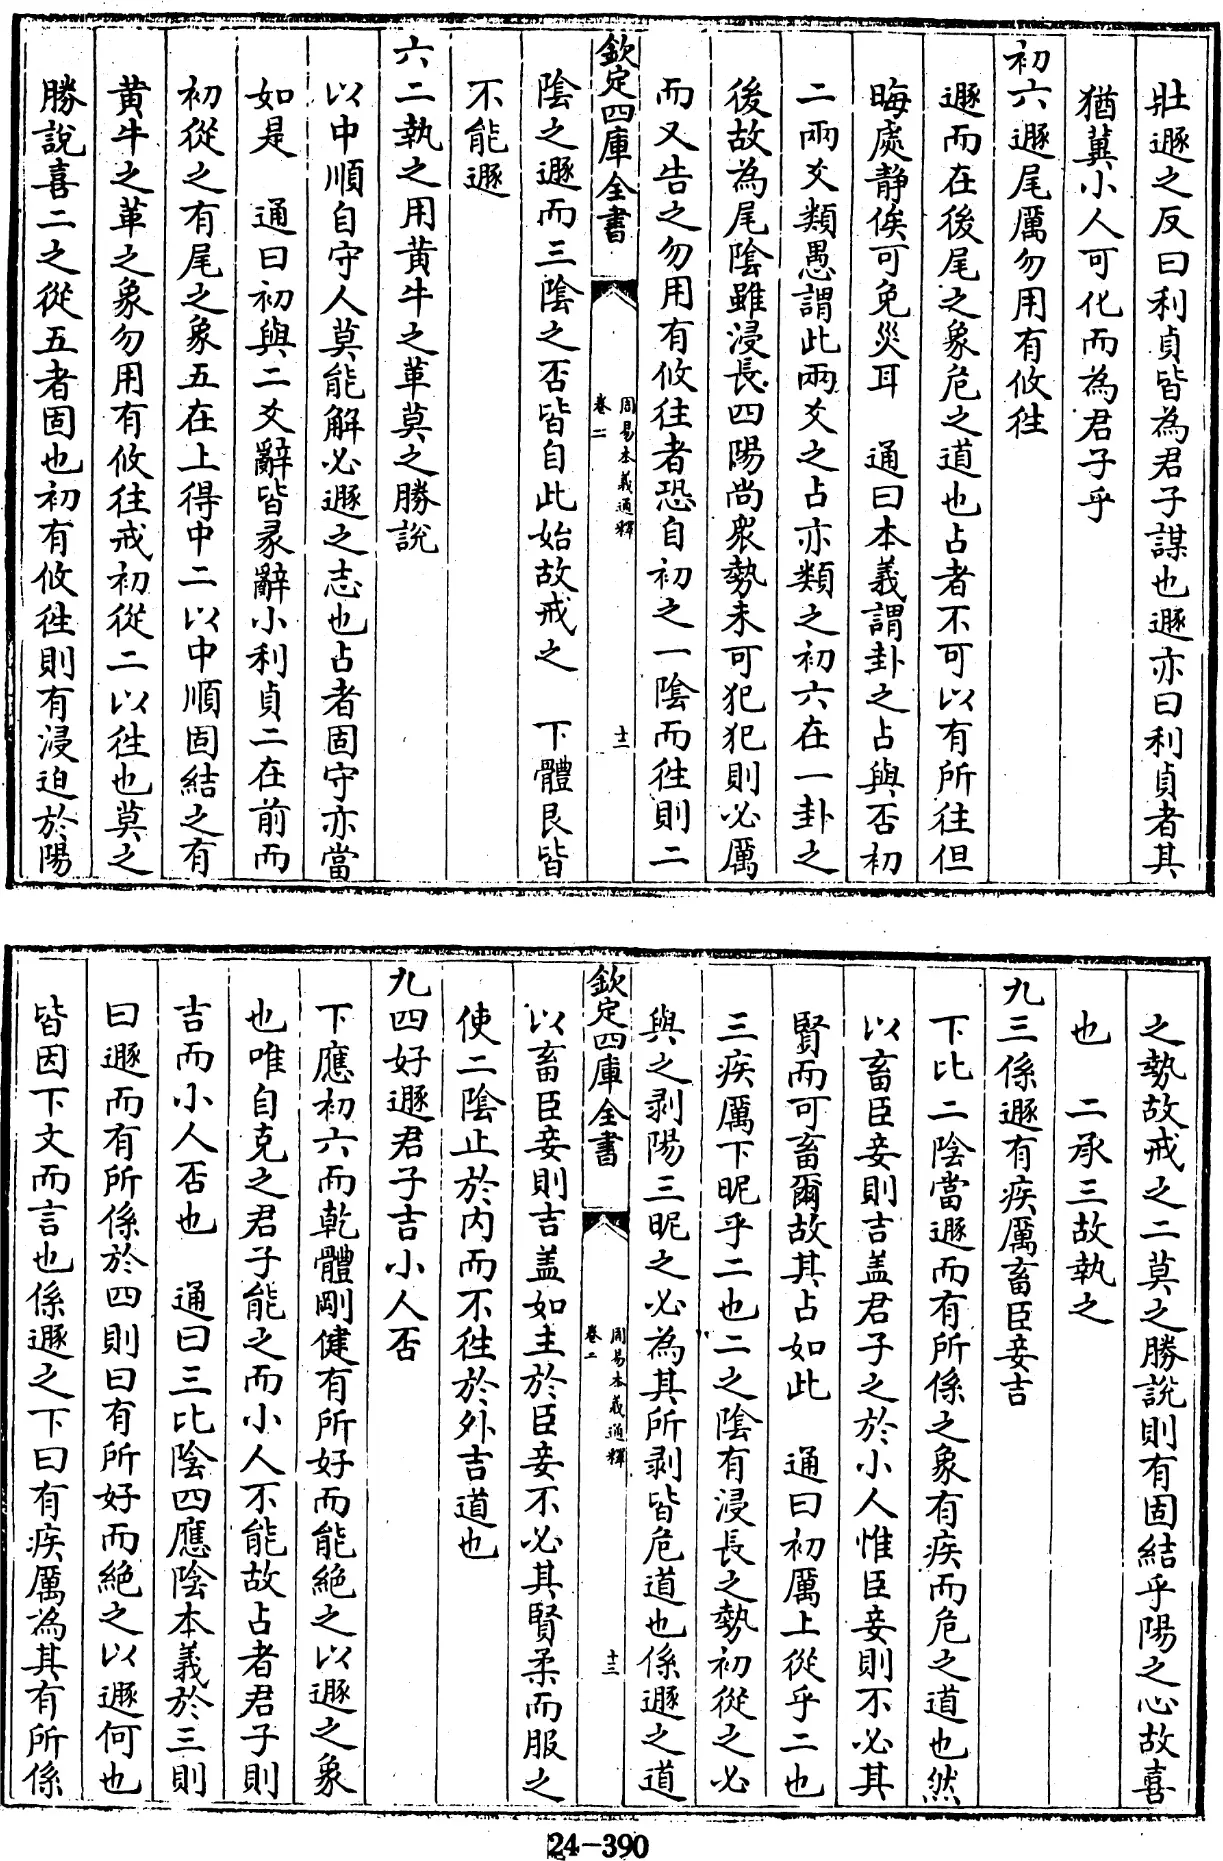 壯遯之反曰利貞皆為君子謀也遯亦曰利貞者其
猶冀小人可化而為君子乎
初六遯尾厲勿用有攸往
遯而在後尾之象危之道也占者不可以有所往但
晦處静俟可免災耳　通曰本義謂卦之占與否初
二兩爻類愚謂此兩爻之占亦類之初六在一卦之
後故為尾陰雖浸長四陽尚衆勢未可犯犯則必厲
而又告之勿用有攸往者恐自初之一陰而往則二
欽定四庫全書
周易本義通釋
卷二
十二
陰之遯而三陰之否皆自此始故戒之　下體艮皆
不能遯
六二執之用黄牛之革莫之勝說
以中順自守人莫能解必遯之志也占者固守亦當
如是　通曰初與二爻辭皆彖辭小利貞二在前而
初從之有尾之象五在上得中二以中順固結之有
黄牛之革之象勿用有攸往戒初從二以往也莫之
勝說喜二之從五者固也初有攸往則有浸迫於陽
之勢故戒之二莫之勝說則有固結乎陽之心故喜
也　二承三故執之
九三係遯有疾厲畜臣妾吉
下比二陰當遯而有所係之象有疾而危之道也然
以畜臣妾則吉盖君子之於小人惟臣妾則不必其
賢而可畜爾故其占如此　通曰初厲上從乎二也
三疾厲下昵乎二也二之陰有浸長之勢初從之必
與之剥陽三昵之必為其所剥皆危道也係遯之道
欽定四庫全書
周易本義通釋
卷二
十三
以畜臣妾則吉盖如主於臣妾不必其賢柔而服之
使二陰止於内而不往於外吉道也
九四好遯君子吉小人否
下應初六而乾體剛健有所好而能絶之以遯之象
也唯自克之君子能之而小人不能故占者君子則
吉而小人否也　通曰三比陰四應陰本義於三則
曰遯而有所係於四則曰有所好而絶之以遯何也
皆因下文而言也係遯之下曰有疾厲為其有所係
24-390